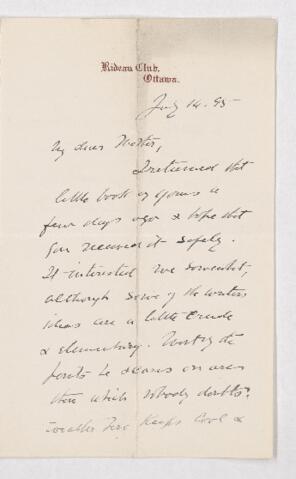 Rideau Club,
Ottawa.
July 14. 95
My dear
I returned that
little book of yours a
few days ago & hope that
you received it safely.
It interested me somewhat,
although some of the writers
ideas are a little crude
& elementary. Most of the
points he dwells on are
which nobody doubts.
Weather here keeps cool &